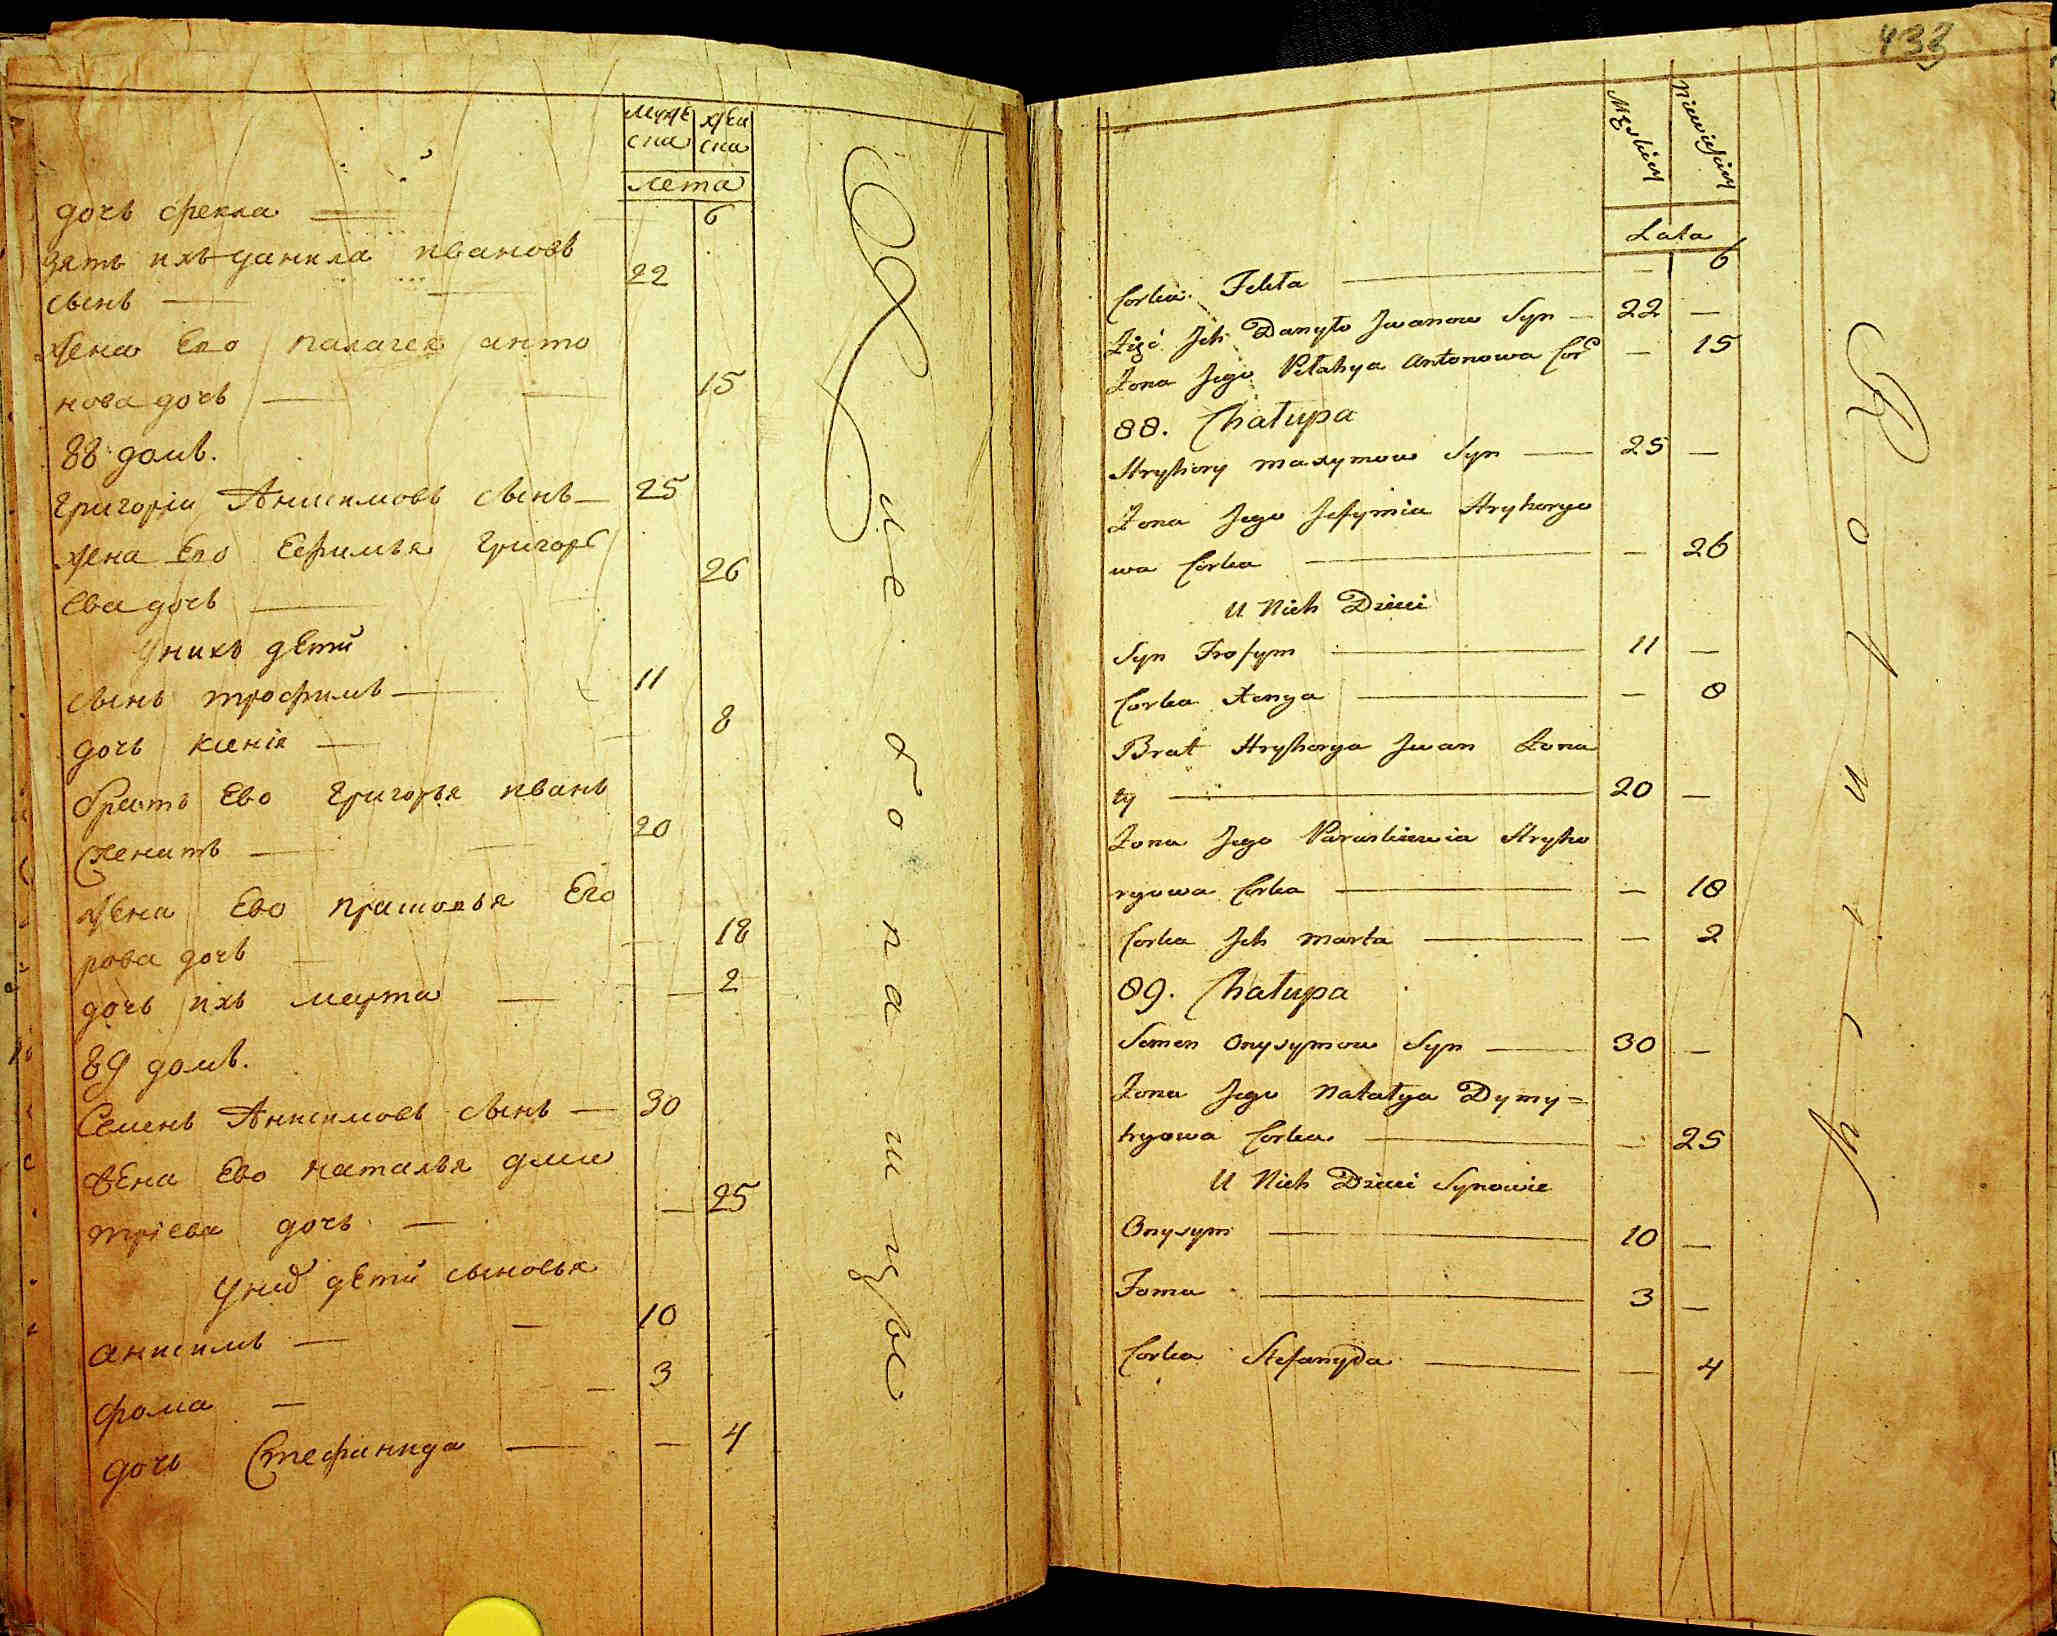 мужеска
женска
лета
дочь фекла — 6
зять ихъ данила ивановъ
сынъ — 22
жена Его палагея анто
нова дочь — 15
88 домъ.
григорiи Анисимовъ сынъ — 25
жена Его Ефимья григорь
Ева дочь — 26
унихъ дети
сынъ трофимъ — 11
дочь ксенiя — 8
братъ Ево григорья иванъ
женатъ — 20
жена Ево прасковья Его
рова дочь — 18
дочь ихъ марта — 2
89 домъ.
Семенъ Анисимовъ сынъ — 30
жена Ево наталья дми
трiева дочь — 25
унихъ дети сыновья
анисимъ — 10
фома — 3
дочь Стефанида — 4
хлебопашцы
433
Męskiey
Niewieściey
Lata
Corka Fekła — 6
Zięć Jch Danyło Jwanow Syn — 22 —
Żona Jego Pełahya Antonowa Cor — 15
88. Chałupa
Hryhory Maxymow Syn — 25 —
Żona Jego Jefymia Hryhorye
wa Corka — 26
U Nich Dzieci
Syn Trofym — 11 —
Corka Xenya — 8
Brat Hryhorya Jwan Żona
ty — 20 —
Żona Jego Paraskiewia Hryho
ryowa Corka — 18
Corka Jch Marta — 2
89. Chałupa
Semen Onysymow Syn — 30 —
Żona Jego Natałya Dymy=
tryowa Corka — 25
U Nich Dzieci Synowie
Onysym — 10 —
Foma — 3 —
Corka Stefanyda — 4